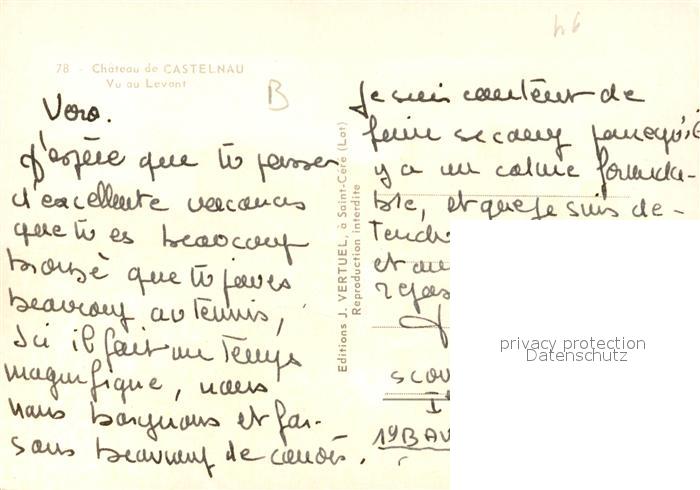 46
78 - Château de CASTELNAU
Vu au Levant
B
Vero.
J'espère que tu passes
d'excellente vacances
que tu es beaucoup
bronzé que tu joues
beaucoup au tennis,
Ici il fait un temps
magnifique, nous
nous baignons et fai-
sons beaucoup de canoës.
Editions J. VERTUEL, à Saint-Céré (Lot)
Reproduction interdite
Je suis content de
faire ce camp parcequ'il
y a un calme formida-
ble, et que je suis de-
tendu
et au
repos
SCOU
I
19 B AV
privacy protection
Datenschutz